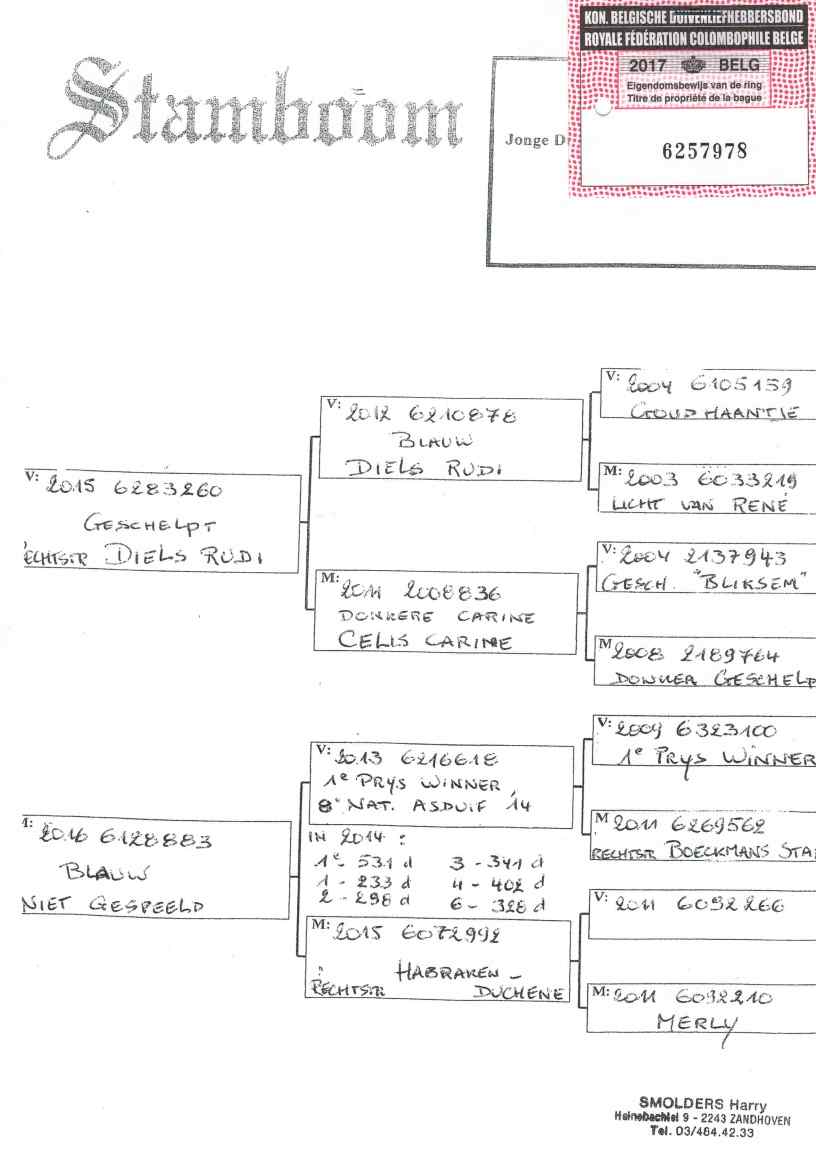 KON. BELGISCHE DUIVENLIEFHEBBERSBOND
ROYALE FÉDÉRATION COLOMBOPHILE BELGE
2017 BELG
Eigendomsbewijs van de ring
Titre de propriété de la bague
6257978
Stamboom
Jonge D
V: 2015 6283260
GESCHELPT
ECHTSTR DIELS RUDI
V: 2012 6210878
BLAUW
DIELS RUDI
M: 2011 2008836
DONKERE CARINE
CELIS CARINE
V: 2004 6105159
GOUD HAANTJE
M: 2003 6033219
LICHT VAN RENÉ
V: 2004 2137943
GESCH. "BLIKSEM"
M 2008 2189764
DONKER GESCHELP
: 2016 6128883
BLAUW
NIET GESPEELD
V: 2013 6216618
1e PRYS WINNER,
8e NAT. ASDUIF 14
IN 2014 :
1e - 531 d 3 - 341 d
1 - 233 d 4 - 402 d
2 - 298 d 6 - 328 d
M: 2015 6072992
: HABRAKEN -
RECHTSTR DUCHENE
V: 2009 6323100
1e PRYS WINNER
M 2011 6269562
RECHTSTR BOECKMANS STA
V: 2011 6092266
M: 2011 6092210
MERLY
SMOLDERS Harry
Heinebachlei 9 - 2243 ZANDHOVEN
Tel. 03/484.42.33